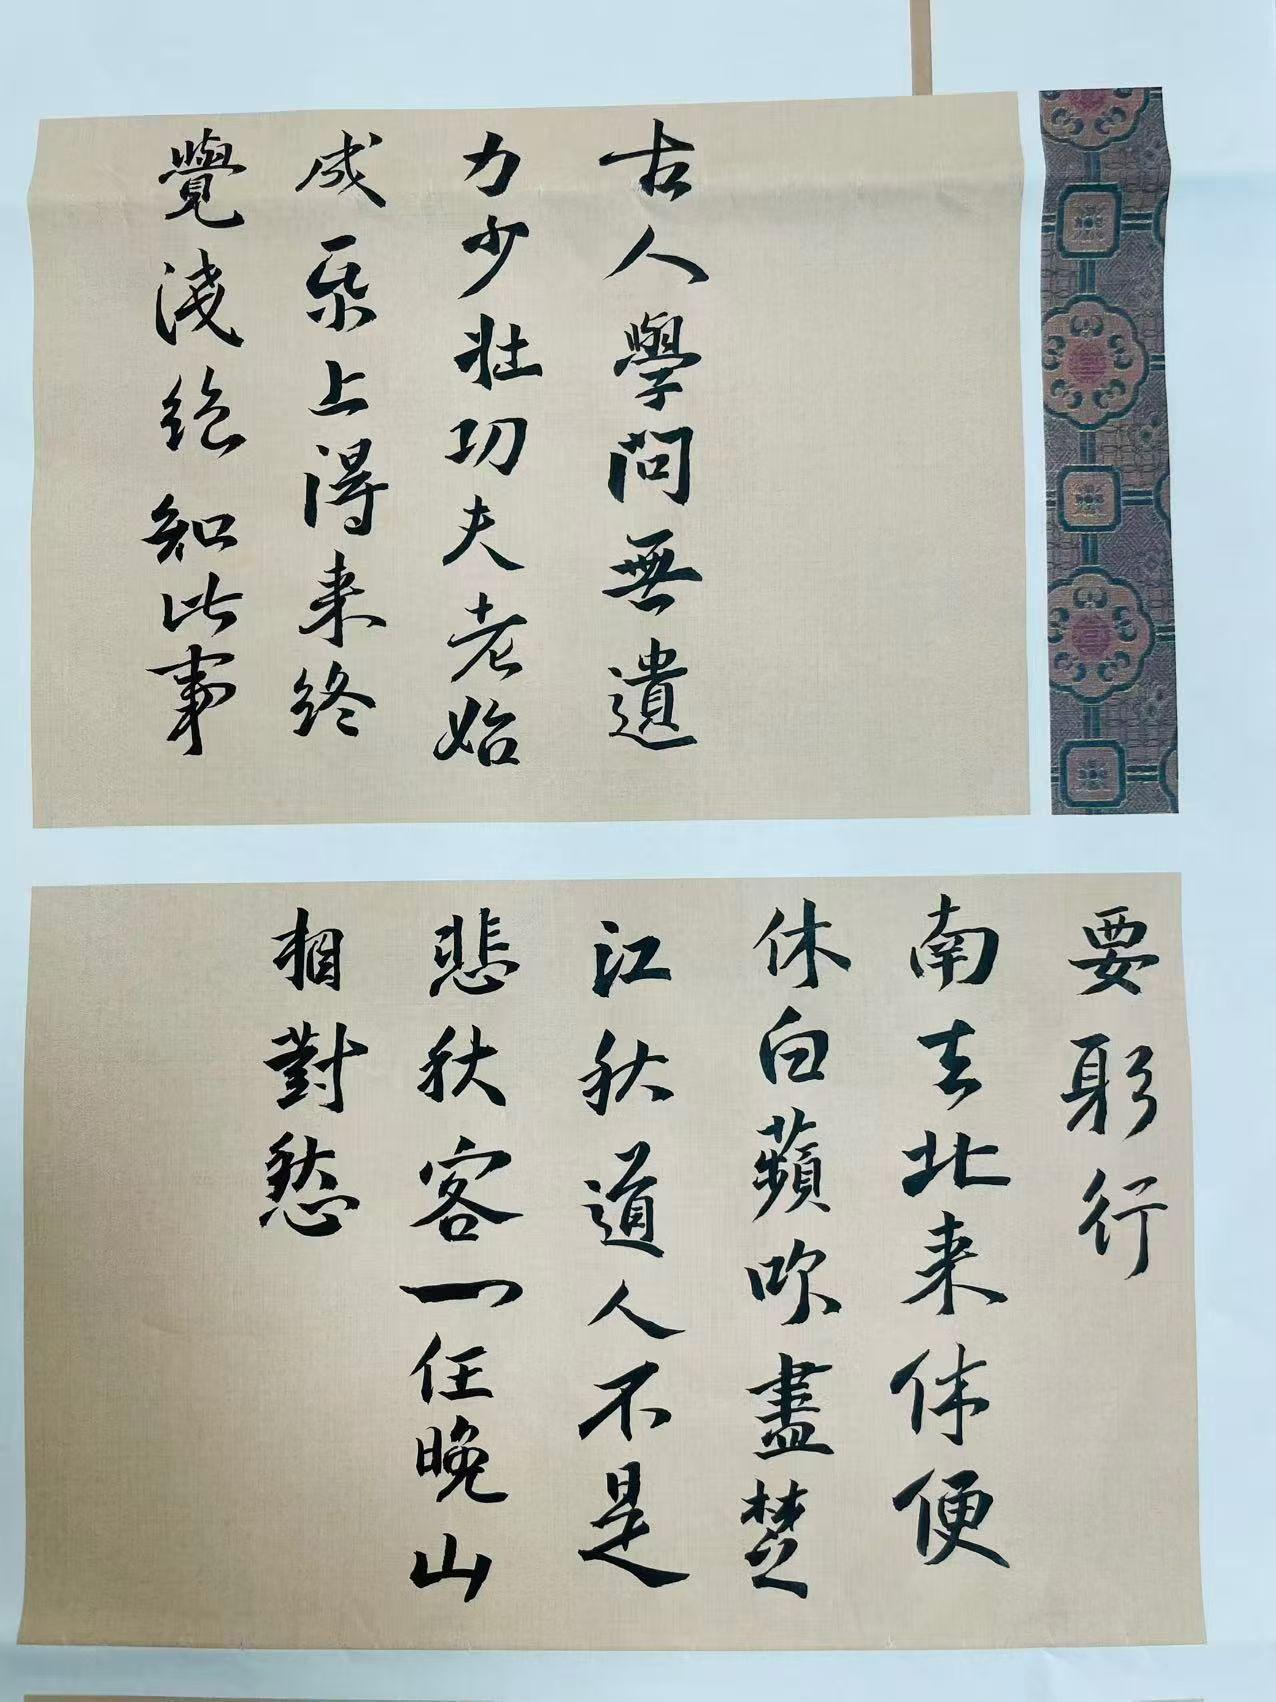 古人學問無遺
力少壯功夫老始
成帋上得来终
覺淺絶知此事
要躬行
南去北来休便
休白蘋吹盡楚
江秋道人不是
悲秋客一任晚山
相對愁